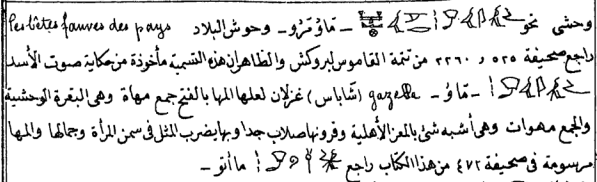 وحشى نحو – قاوُ تروُ – وحوش البلاد les bêtes fauves des pays
راجع صحيفة ٥٢٥ و ٢٢٦٠ من تتمة القاموس لبروكش والظاهران هذه التسمية مأخوذة من حكاية صوت الأسد
– قاوُ – gazelle (شاباس) غزلان لعلها المها بالفتح جمع مهاة وهى البقرة الوحشية
والجمع مهوات وهى أشبه شئ بالمعز الأهلية وقرونها صلاب جدا وبها يضرب المثل فى سمن المرأة وجمالها والمها
مرسومة فى صحيفة ٤٧٢ من هذا الكتاب راجع مااُتوُ –